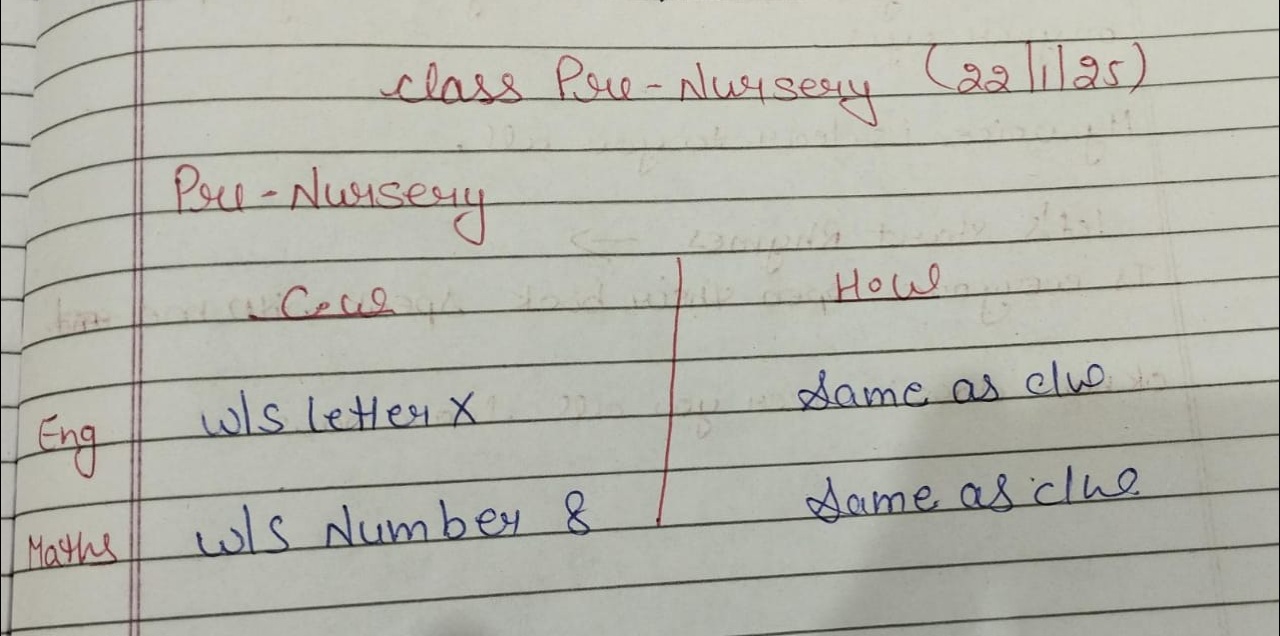 class Pre-Nursery (22/1/25)
Pre-Nursery
C.w H.w
Eng w/s letter X Same as c/w
Maths w/s Number 8 Same as c/w